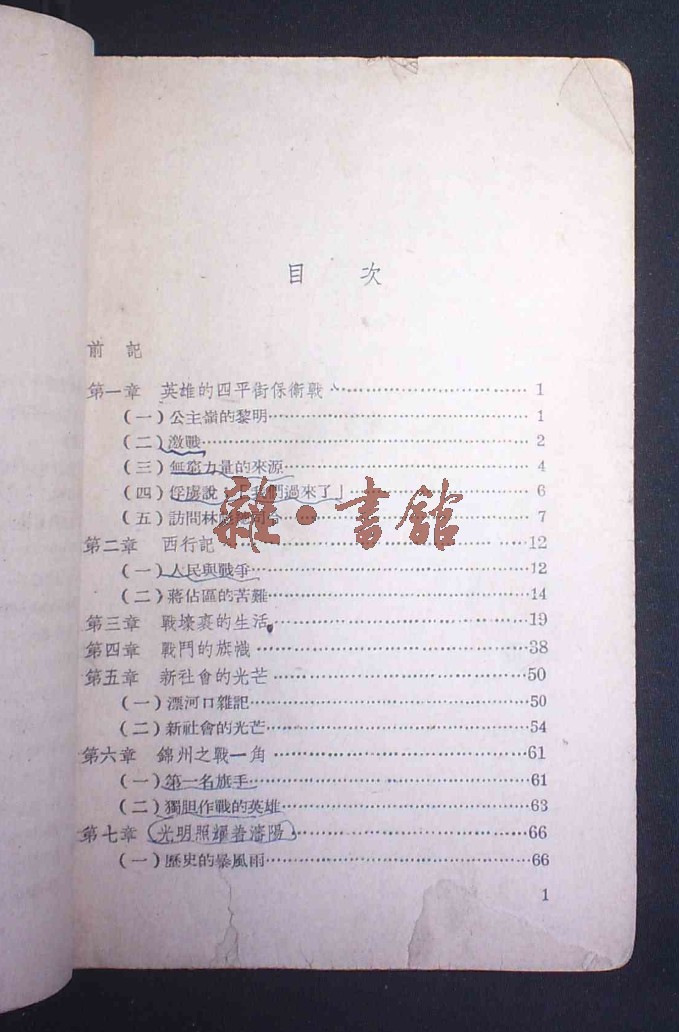 目 次
前 記
第一章 英雄的四平街保衛戰 1
(一)公主嶺的黎明 1
(二)激戰 2
(三)無窮力量的來源 4
(四)俘虜說:「我們過來了」 6
(五)訪問林彪同志 7
雜·書館
第二章 西行記 12
(一)人民與戰爭 12
(二)蔣佔區的苦難 14
第三章 戰壕裏的生活 19
第四章 戰鬥的旗幟 38
第五章 新社會的光芒 50
(一)漂河口雜記 50
(二)新社會的光芒 54
第六章 錦州之戰一角 61
(一)第一名旗手 61
(二)獨胆作戰的英雄 63
第七章 光明照耀着瀋陽 66
(一)歷史的暴風雨 66
1